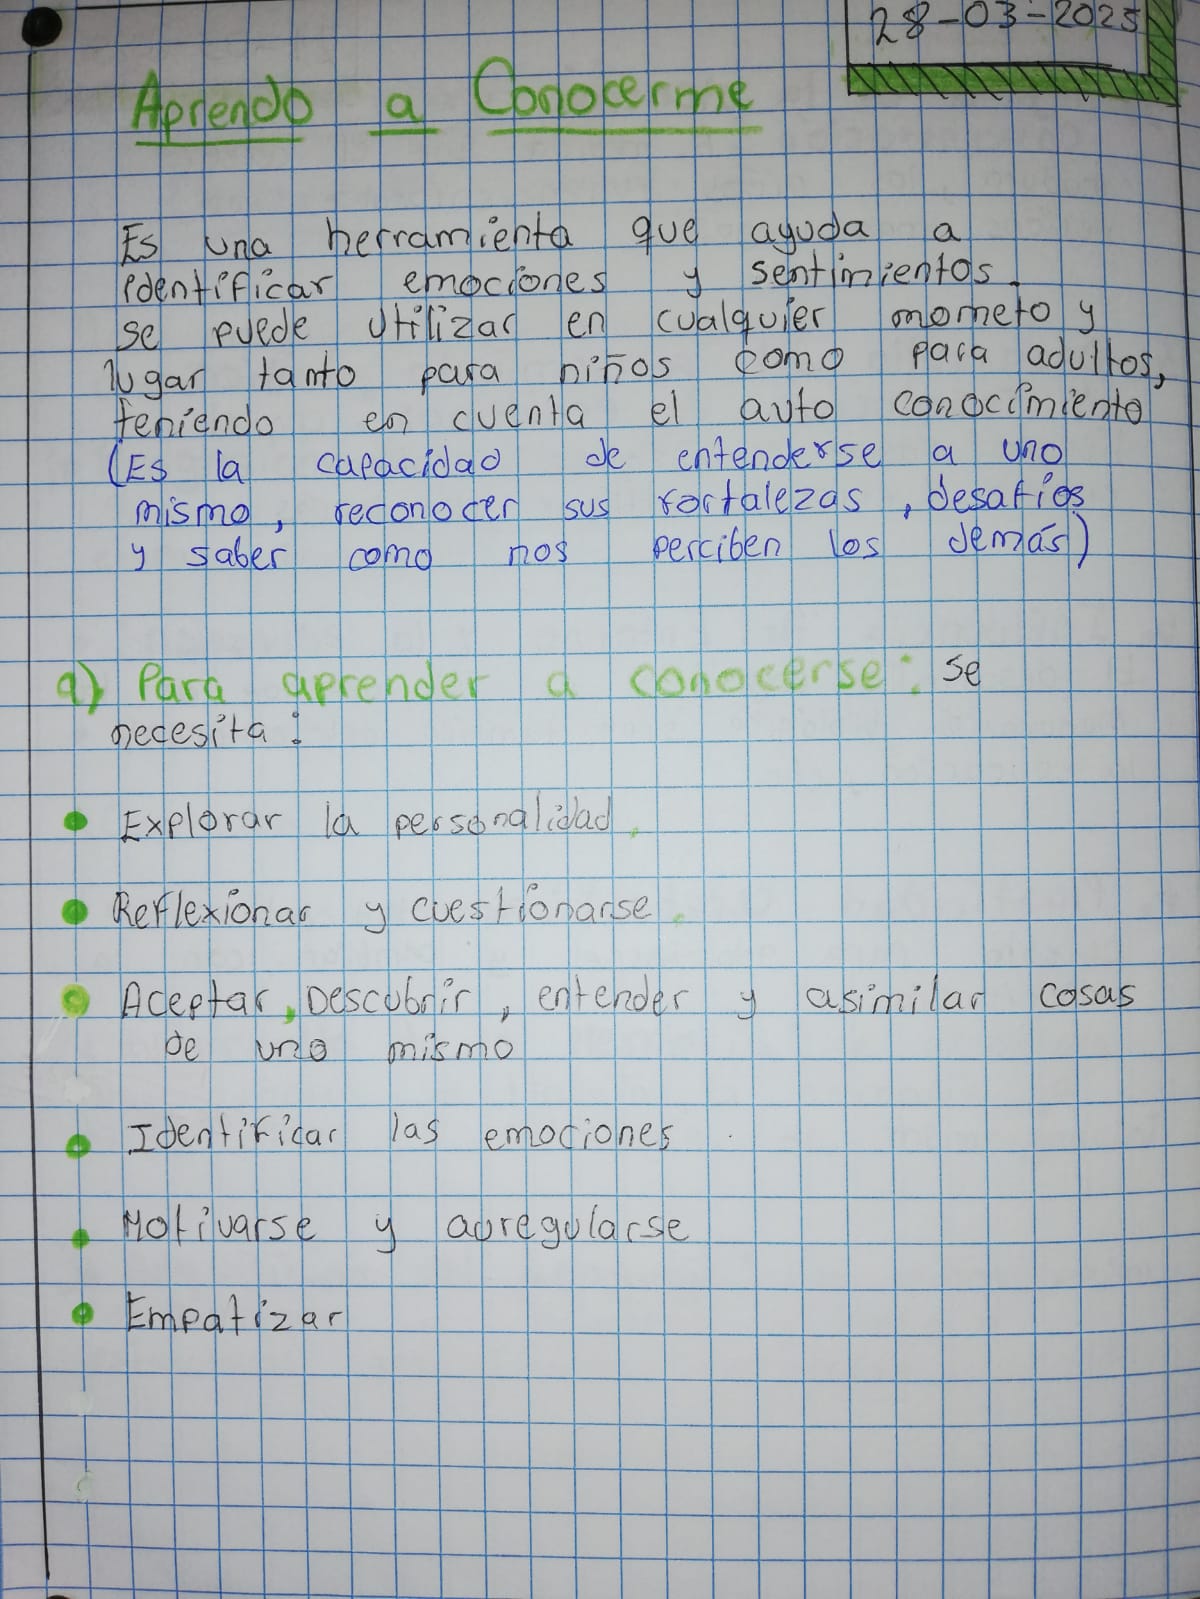 28-03-2025
Aprendo a Conocerme
Es una herramienta que ayuda a
identificar emociones y sentimientos.
se puede utilizar en cualquier mometo y
lugar tanto para niños como para adultos,
teniendo en cuenta el auto conocimiento
(Es la capacidad de entenderse a uno
mismo, reconocer sus fortalezas, desafíos
y saber como nos perciben los demás)
a) Para aprender a conocerse: se
necesita:
• Explorar la personalidad.
• Reflexionar y cuestionarse.
• Aceptar, Descubrir, entender y asimilar cosas
de uno mismo
• Identificar las emociones
• Motivarse y auregularse
• Empatizar